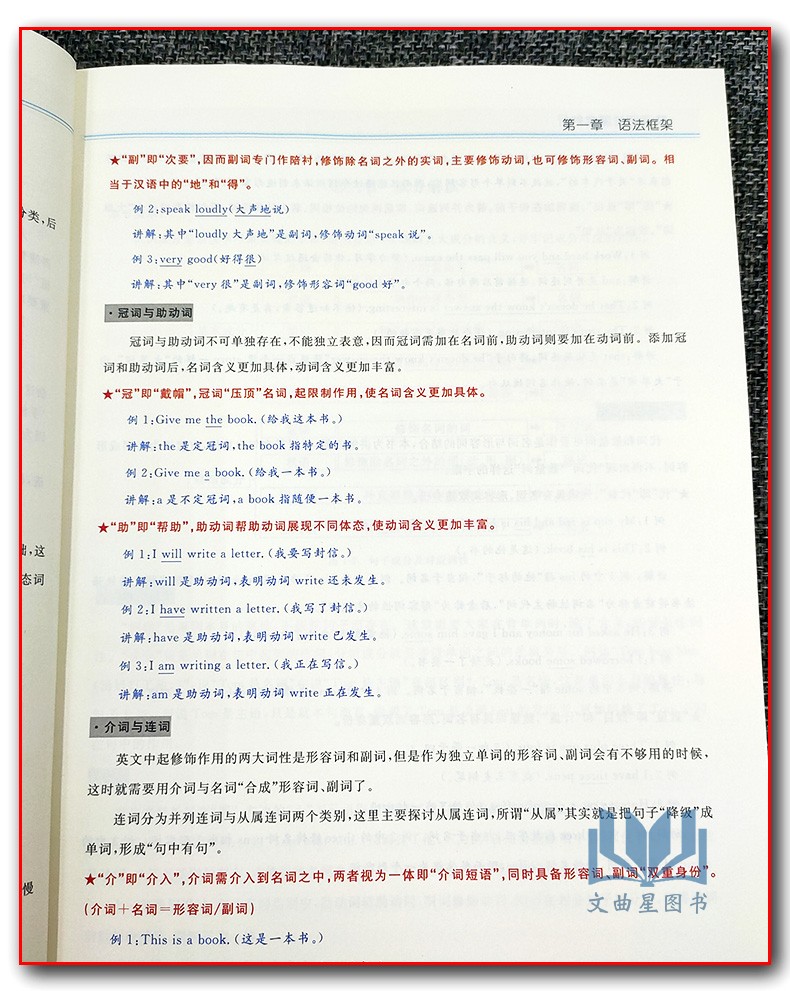 第一章 语法框架
★“副”即“次要”,因而副词专门作陪衬,修饰除名词之外的实词,主要修饰动词,也可修饰形容词、副词。相
当于汉语中的“地”和“得”。
例 2:speak loudly(大声地说)
讲解:其中“loudly 大声地”是副词,修饰动词“speak 说”。
例 3:very good(好得很)
讲解:其中“very 很”是副词,修饰形容词“good 好”。
·冠词与助动词
冠词与助动词不可单独存在,不能独立表意,因而冠词需加在名词前,助动词则要加在动词前。添加冠
词和助动词后,名词含义更加具体,动词含义更加丰富。
★“冠”即“戴帽”,冠词“压顶”名词,起限制作用,使名词含义更加具体。
例 1:Give me the book.(给我这本书。)
讲解:the是定冠词,the book 指特定的书。
例 2:Give me a book.(给我一本书。)
讲解:a是不定冠词,a book 指随便一本书。
★“助”即“帮助”,助动词帮助动词展现不同体态,使动词含义更加丰富。
例 1:I will write a letter.(我要写封信。)
讲解:will是助动词,表明动词 write 还未发生。
例 2:I have written a letter.(我写了封信。)
讲解:have是助动词,表明动词 write 已发生。
例 3:I am writing a letter.(我正在写信。)
讲解:am是助动词,表明动词 write 正在发生。
·介词与连词
英文中起修饰作用的两大词性是形容词和副词,但是作为独立单词的形容词、副词会有不够用的时候,
这时就需要用介词与名词“合成”形容词、副词了。
连词分为并列连词与从属连词两个类别,这里主要探讨从属连词,所谓“从属”其实就是把句子“降级”成
单词,形成“句中有句”。
★“介”即“介入”,介词需介入到名词之中,两者视为一体即“介词短语”,同时具备形容词、副词“双重身份”。
(介词+名词=形容词/副词)
例 1:This is a book.(这是一本书。)
分类,后
,这
态词
慢
文曲星图书